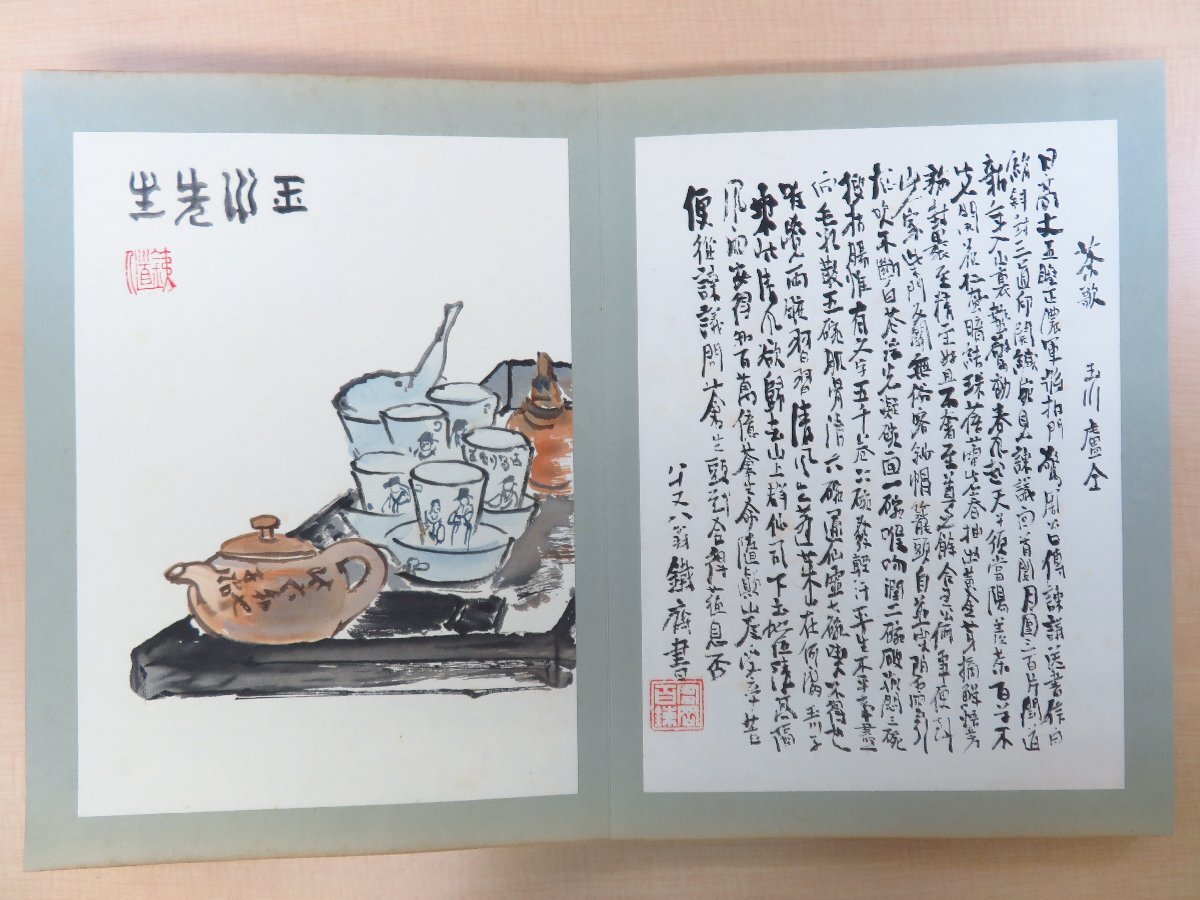 茶歌 玉川盧仝
日高丈五睡正濃軍將拍門驚周公口傳諫議送書信白
絹斜封三道印開緘宛見諫議面首閱月團三百片聞道
新年入山裏蟄蟲驚動春風起天子須嘗陽羨茶百草不
先開花仁風暗結珠蓓蕾先春抽出黃金芽摘鮮焙芳
旋封裹至精至好且不奢至尊之餘合王公何事便到
山人家柴門反關無俗客紗帽籠頭自煎喫碧雲引
風吹不斷白花浮光凝碗面一碗喉吻潤二碗破孤悶三碗
搜枯腸惟有文字五千卷四碗發輕汗平生不平事盡
向毛孔散五碗肌骨清六碗通仙靈七碗喫不得也
唯覺兩腋習習清風生蓬萊山在何處玉川子
乘此清風欲歸去山上群仙司下土地位清高隔
風雨安得知百萬億蒼生命墮顛崖受辛苦
便從諫議問蒼生頭到合得蘇息否
八十又八翁鐵齋書
富岡百鍊
玉川先生